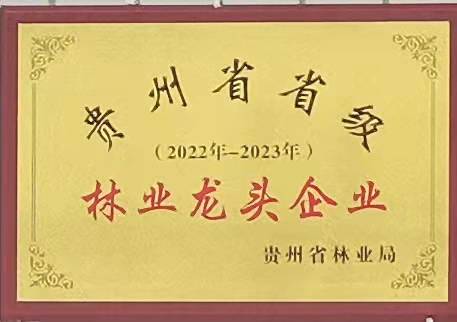 贵州省省级
（2022年-2023年）
林业龙头企业
贵州省林业局